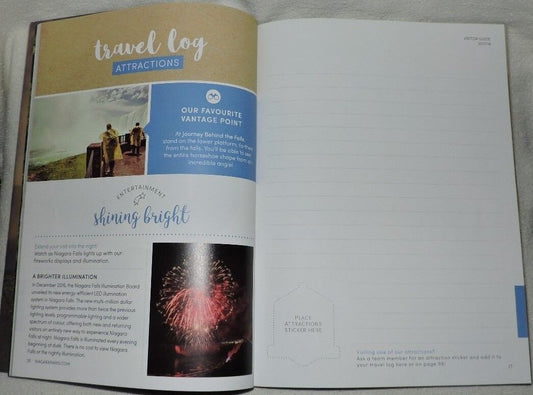 travel log
ATTRACTIONS
OUR FAVOURITE
VANTAGE POINT
At Journey Behind the Falls,
stand on the lower platform, farthest
from the falls. You'll be able to see
the entire horseshoe shape from an
incredible angle!
ENTERTAINMENT
shining bright
Extend your visit into the night!
Watch as Niagara Falls lights up with our
fireworks displays and illumination.
A BRIGHTER ILLUMINATION
In December 2016, the Niagara Falls Illumination Board
unveiled its new energy-efficient LED illumination
system in Niagara Falls. The new multi-million dollar
lighting system provides more than twice the previous
lighting levels, programmable lighting and a wider
spectrum of colour, offering both new and returning
visitors an entirely new way to experience Niagara
Falls at night. Niagara Falls is illuminated every evening
beginning at dusk. There is no cost to view Niagara
Falls or the nightly illumination.
NIAGARAPARKS.COM
VISITOR GUIDE
PLACE
ATTRACTIONS
STICKER HERE
Visiting one of our attractions?
Ask a team member for an attraction sticker and add it to
your travel log here or on page 98!